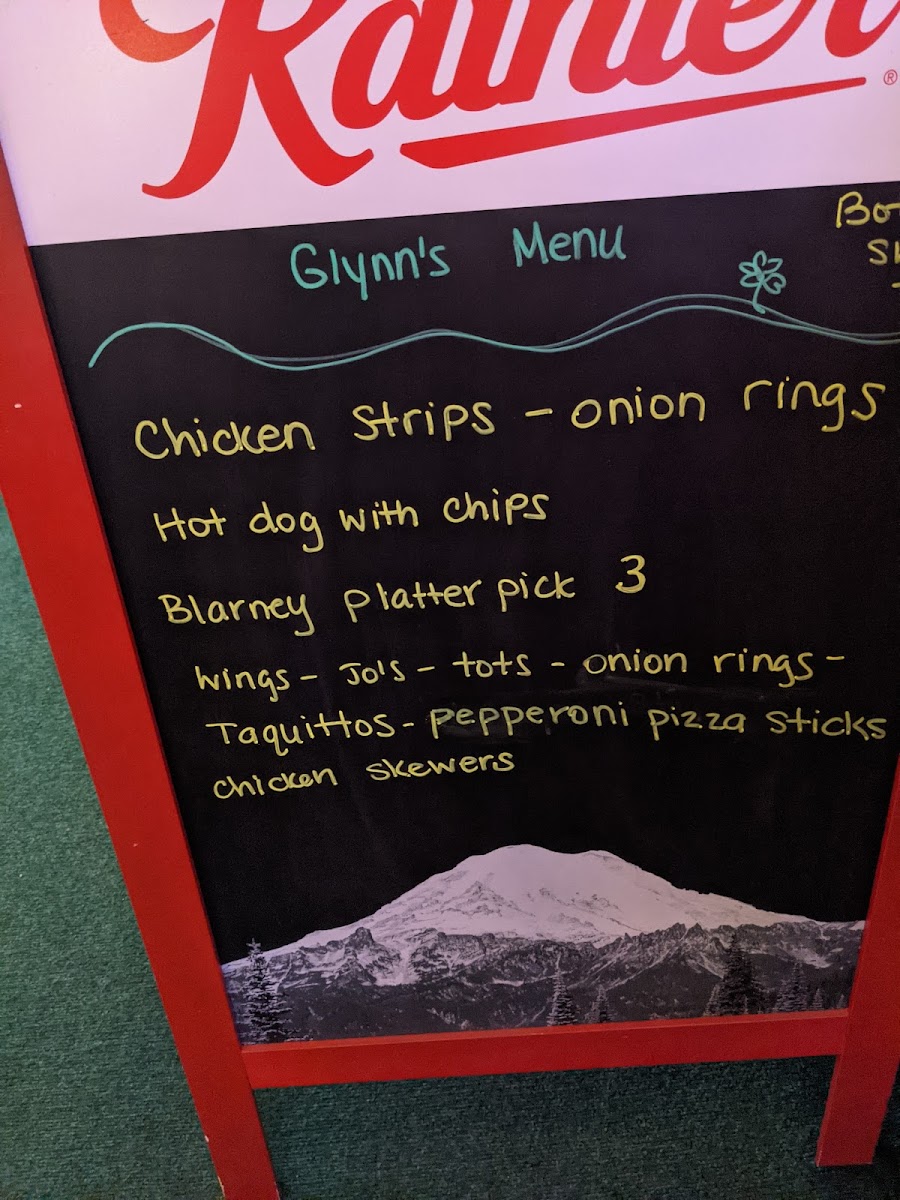 Rainier
®
Glynn's Menu
Chicken Strips - onion rings
Hot dog with chips
Blarney platter pick 3
wings - Jo's - tots - onion rings -
Taquittos - pepperoni pizza sticks
chicken skewers